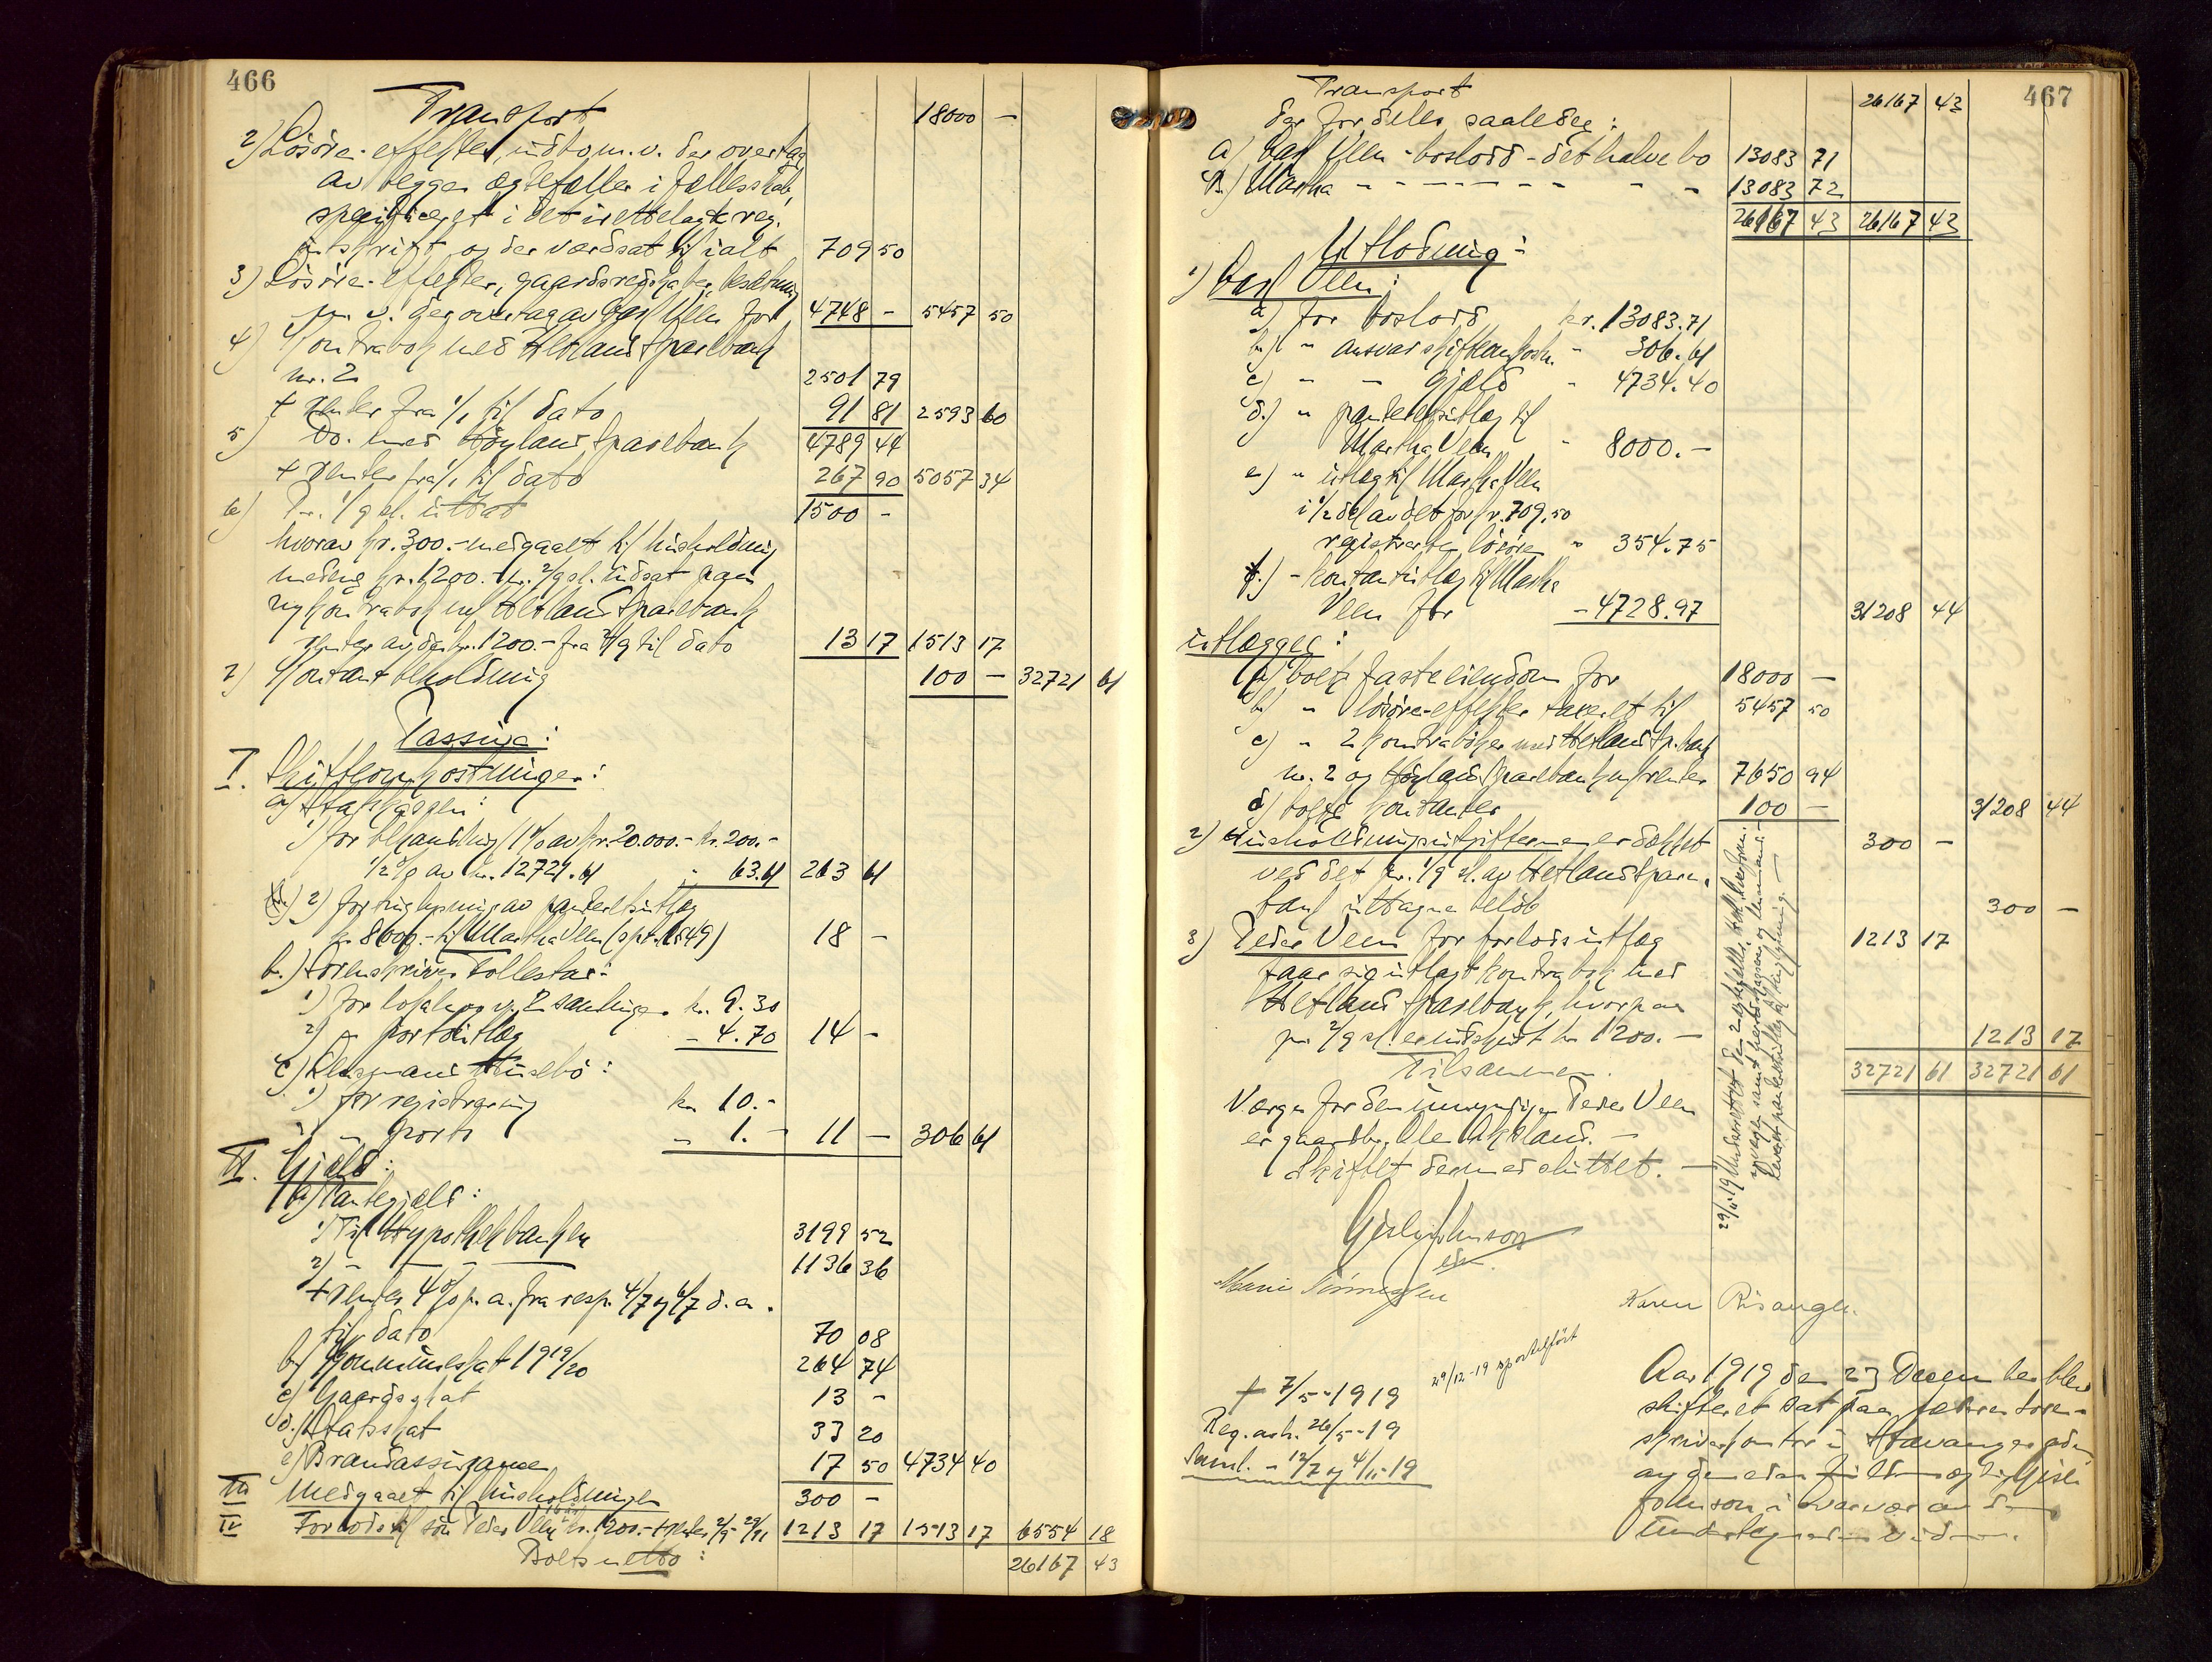 466
Transport 18000 -
2) Lösöre-effekter, indbo, m.v. der overtag
av begge ægtefæller i fællesskab,
specificeret i det irettelagte reg.
utskrift og der værdsat til ialt 709 50
3) Lösöre-effekter, gaardsredskaber, besætning
m. v. der overtag av Carl Ueen for 4748 - 5457 50
4) Kontrabok med Hetland Sparebank
nr. 2 2501 79
+ renter fra 1/1 til dato 91 81 2593 60
5) Do. med Höyland Sparebank 4789 44
+ renter fra 1/1 til dato 267 90 5057 34
6) Pr. 1/9 sl. uttat 1500 -
hvorav kr. 300.- medgaat til husholdning
medens kr. 1200.- pr. 2/9 sl. indsat paa
ny kontrabok m/ Hetland Sparebank
renter av de kr. 1200.- fra 2/9 til dato 13 17 1513 17
7) Kontantbeholdning 100 - 32721 61
Passiva:
I. Skifteomkostninger:
a) Statskassen:
1) for behandling 1% av kr. 20.000.- kr. 200.-
1/2 % av kr. 12721.61 " 63.61 263 61
2) for tinglysning av panteretsutlæg
kr. 8000.- til Martha Ueen (spt. 1549) 18 -
b.) Sorenskriver Tollestad:
1) for lokale og v. 2 samlinger kr. 9.30
2) " portoutlæg - 4.70 14 -
c) Lensmand Husebö:
1) for registrering kr. 10.-
2) " porto - 1.- 11 - 306 61
II. Gjæld:
a) Pantegjæld:
1) Til Hypothekbanken 3199 52
2) " - - 1136 36
+ renter 4% p.a. fra resp. 4/7 og 6/7 d.a.
til dato 70 08
b) Kommuneskat 1919/20 264 74
c) Gaardsskat 13 -
d.) Statsskat 33 20
e) Brandassurance 17 50 4734 40
III Medgaaet til husholdningen 300 -
IV Forlods til sön Peder Ueen kr. 1200.- + renter 2/9-29/11 1213 17 1513 17 6554 18
Boets netto: 26167 43
467
Transport 26167 43
der fordeles saaledes:
a) Carl Ueen - boslodd - det halve bo 13083 71
b.) Martha - - - - - - - - 13083 72
26167 43 26167 43
Utlodning:
1) Carl Ueen:
a) for boslodd kr. 13083.71
b) " ansvar skifteomkostn. " 306.61
c) " - gjæld " 4734.40
d.) " panteretsutlæg til
Martha Ueen " 8000.-
e) " utlæg til Martha Ueen
i 1/2 del av det for kr. 709,50
registrerte lösöre " 354.75
f.) - kontantutlæg til Martha
Ueen for - 4728.97 31208 44
utlægges:
a) boets faste eiendom for 18000 -
b) " lösöre-effekter taxeret til 5457 50
c) " 2 kontraböker med Hetland Sp.bank
nr. 2 og Höyland Sparebank m/ renter 7650 94
d) boets kontanter 100 - 31208 44
2) Husholdningsutgifterne er dækket 300 -
ved det pr. 1/9 sl. av Hetland Spare-
bank uttagne belöb 300 -
3) Peder Ueen for forlodsutlæg 1213 17
faar sig utlagt kontrabok med
Hetland Sparebank, hvorpaa
pr. 2/9 sl. er indskudt kr 1200.- 1213 17
Tilsammen. 32721 61 32721 61
Værge for den umyndige Peder Ueen
er gaardbr. Ole Aksland.-
Skiftet dermed sluttet.-
Gisle Johnson
Karen Risanger.
29/12-19 sportelfört
+ 7/5-1919
Reg. avh. 26/5-19
Saml. - 12/7 og 4/11-19
Aar 1919 den 23 December blev
skifteret sat paa Jæderen soren-
skriverkontor i Stavanger
av den edsv. fuldmægtig Gisle
Johnson i overvær av de
undertegnede vidner.